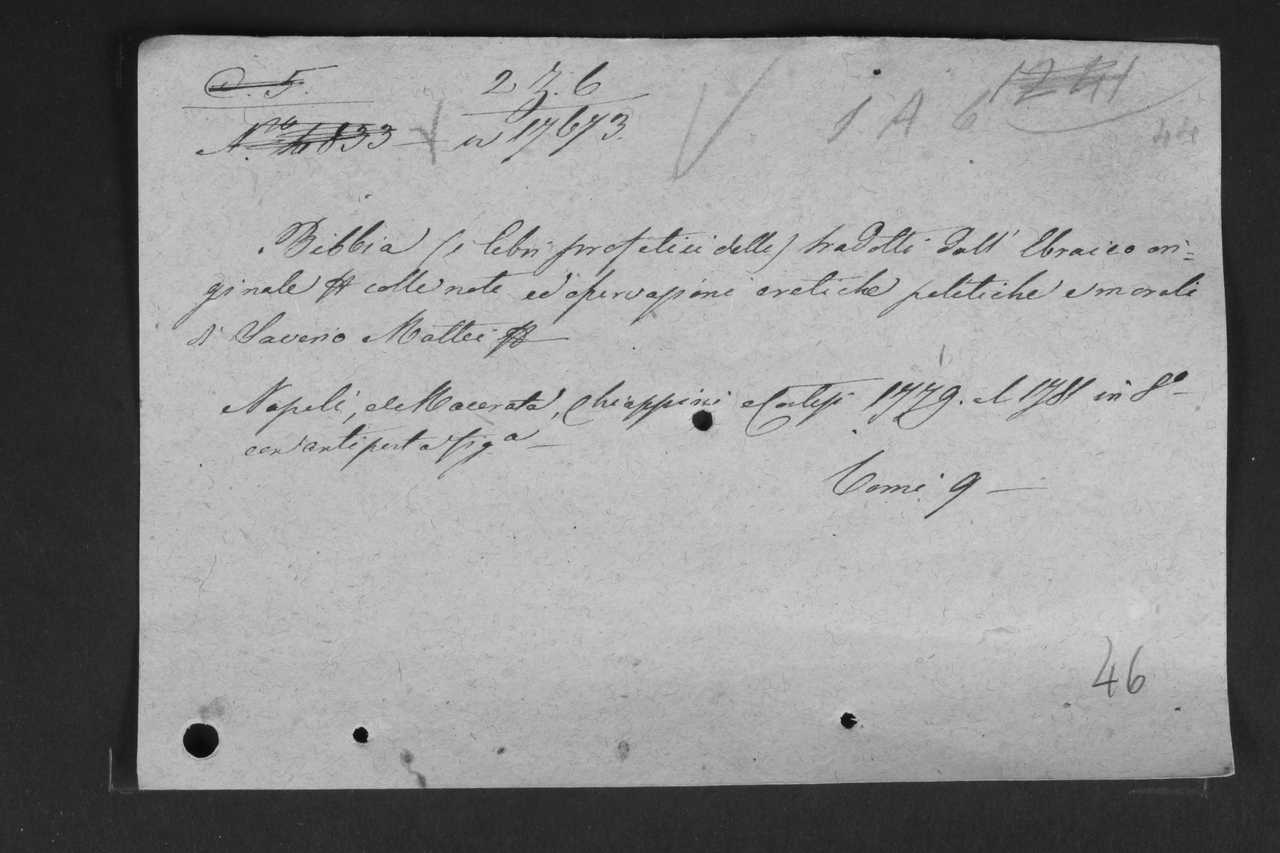 C. 5. 2 Z. 6
N.ro 4833 — n 17673. 1 A 6 1241
44
Bibbia (i libri profetici delle) tradotti dall' Ebraico ori=
ginale colle note ed' osservazioni critiche politiche e morali
di Saverio Mattei —
Napoli, e Macerata, Chiappini e Cortesi 1779. al 1781 in 8º —
con antiporta figª —
Tomi 9 —
46